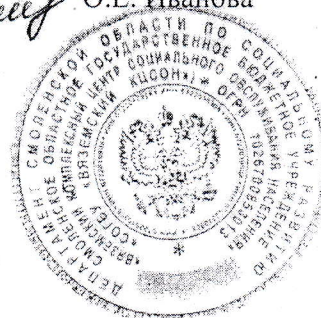 О.Е. Иванова
ДЕПАРТАМЕНТ СМОЛЕНСКОЙ ОБЛАСТИ ПО СОЦИАЛЬНОМУ РАЗВИТИЮ
СМОЛЕНСКОЕ ОБЛАСТНОЕ ГОСУДАРСТВЕННОЕ БЮДЖЕТНОЕ УЧРЕЖДЕНИЕ
«ВЯЗЕМСКИЙ КОМПЛЕКСНЫЙ ЦЕНТР СОЦИАЛЬНОГО ОБСЛУЖИВАНИЯ НАСЕЛЕНИЯ»
«ВЯЗЕМСКИЙ КЦСОН») * ОГРН
СОГБУ
*